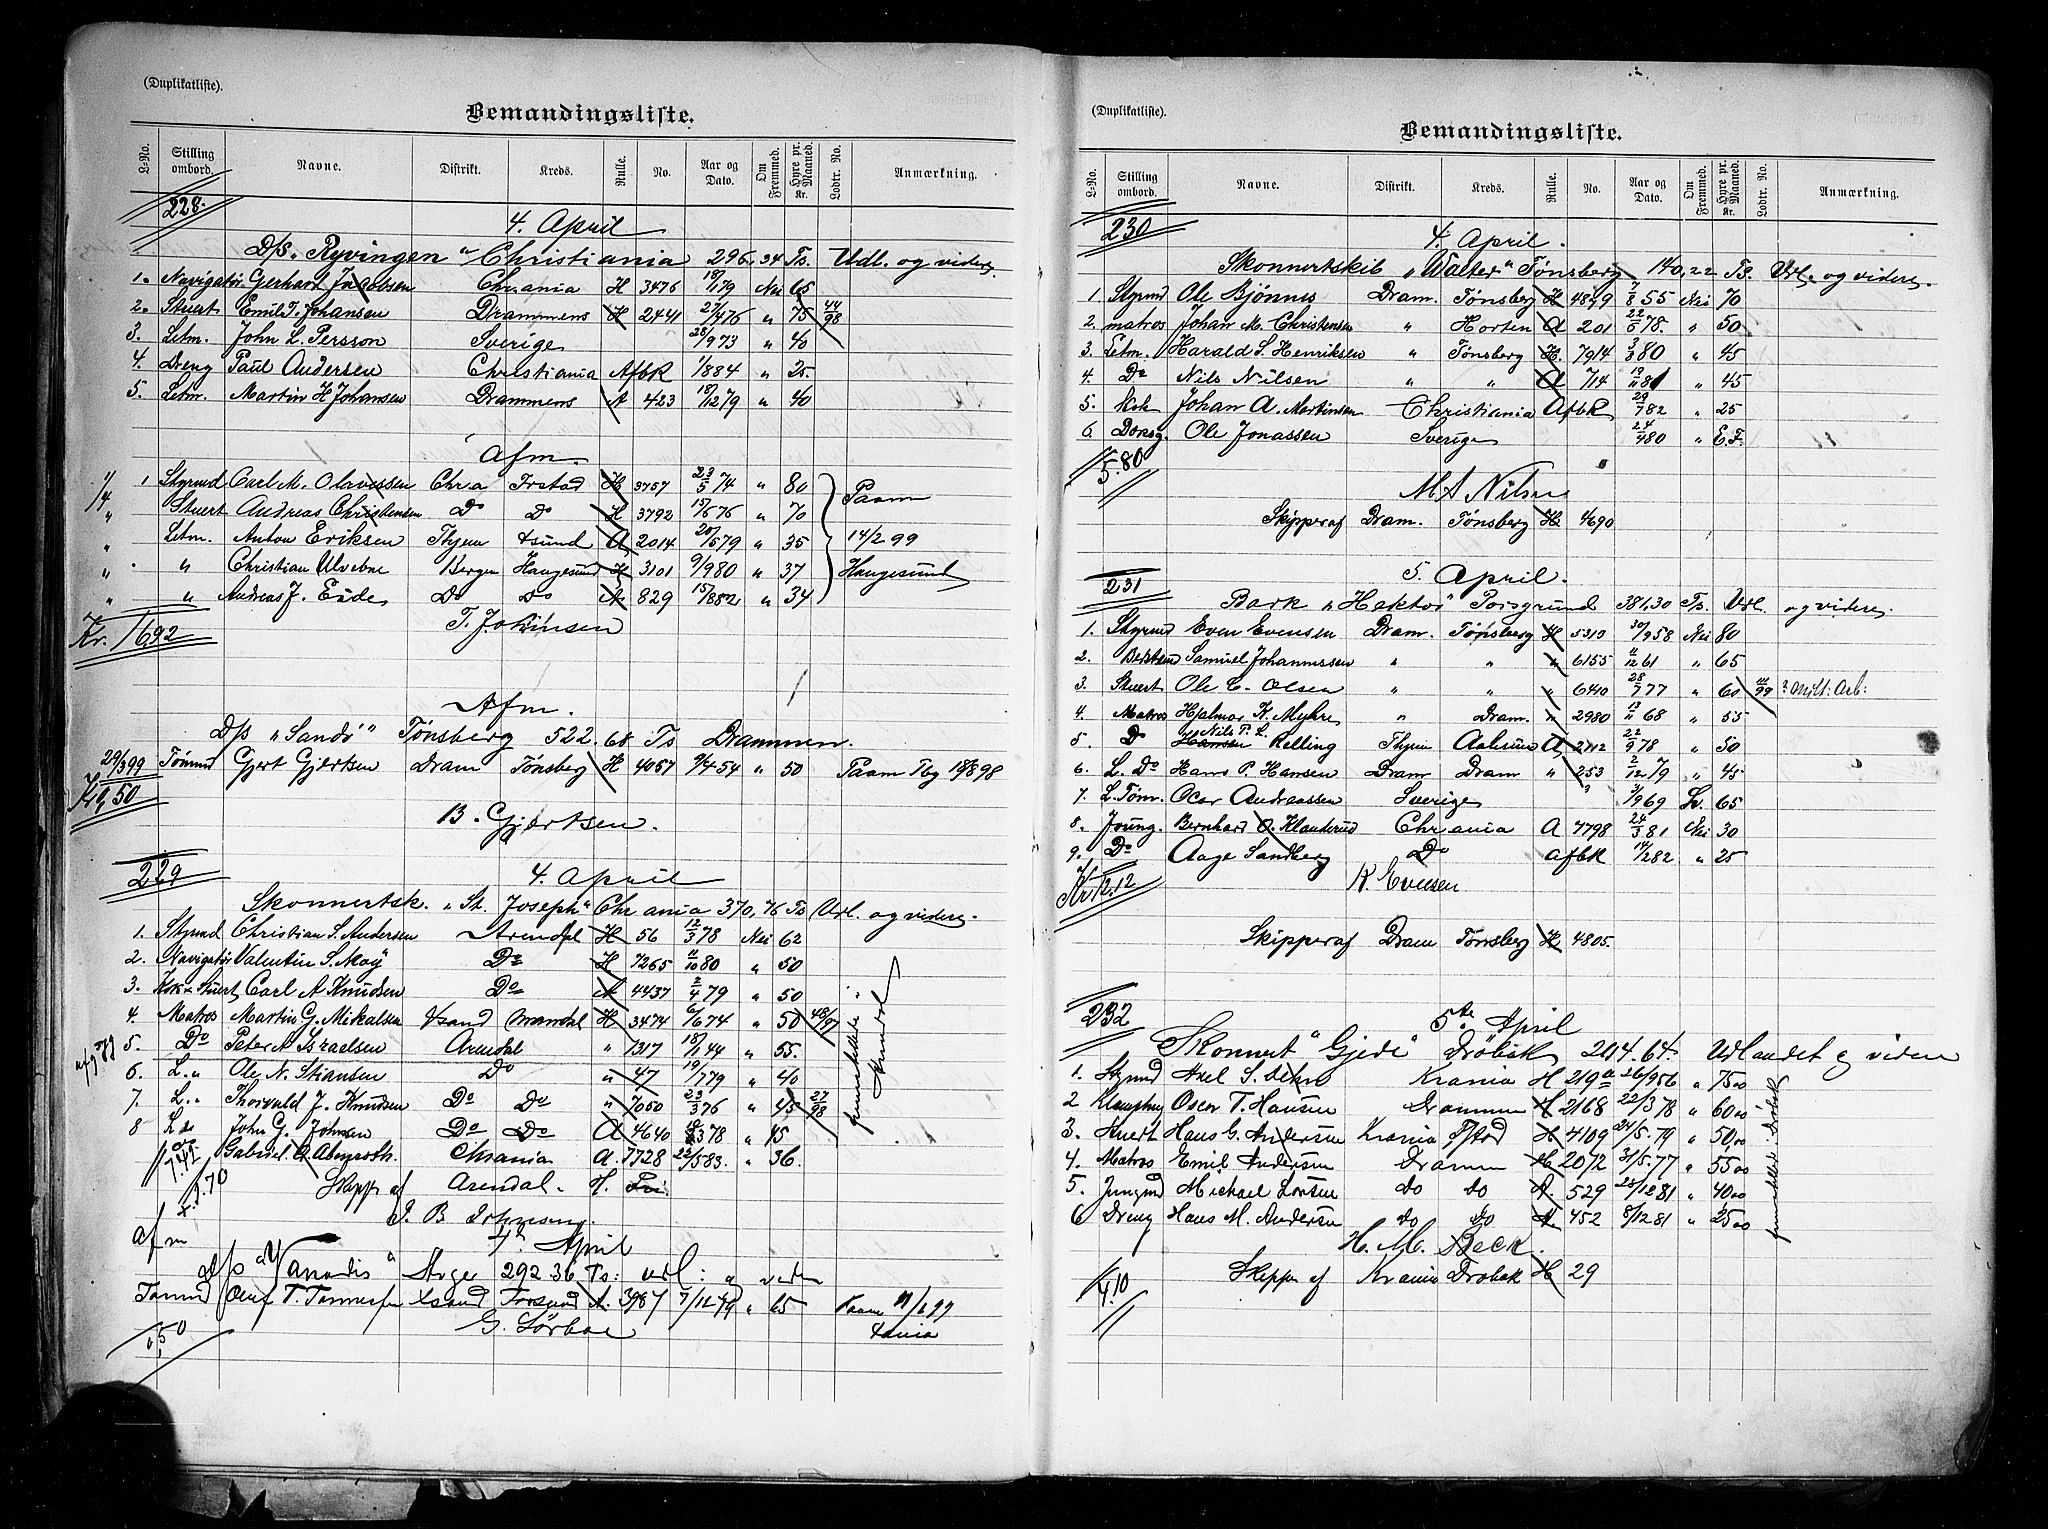 (Duplikatliste).
Bemandingsliste.
L-No. Stilling ombord. Navne. Distrikt. Kreds. Rulle. No. Aar og Dato. Om Fremmed. Hyre pr. Maaned. Kr. Lodtr. No. Anmærkning.
228.
4. April
D/S „Ryvingen" Christiania 296.34 Ts. Udl. og videre.
1. Navigatør Gerhard Jacobsen Chrania H 3476 18/1 79 Nei 65
2. Stuert Emil T. Johansen Drammens H 2441 27/4 76 " 75 44/98
3. Letm. John L. Persson Sverige 28/9 73 " 40
4. Dreng Paul Andersen Christiania AfbK 1/8 84 " 25.
5. Letm. Martin H Johansen Drammens A 423 18/12 79 " 40
Afm.
1/4 1 Styrmd Carl M. Olavessen Chra Frstad H 3757 23/5 74 " 80 Paam
" Stuert Andreas Christensen Do Do H 3792 15/6 76 " 70
" Letm. Anton Eriksen Thjem xsund A 2014 20/6 79 " 35 14/2 99
" " Christian Ulvebne Bergen Haugesund H 3101 9/9 80 " 37 Haugesund
" " Andreas J. Eide Do Do A 829 15/8 82 " 34
T. Johnsen
Kr. 16,92
Afm.
D/S „Sandø" Tønsberg 522.68 Ts Drammen.
29/3 99 Tømmd Gjert Gjertsen Dram Tønsberg H 4057 9/4 54 " 50 Paam Tbg 18/8 98
Kr 1,50
B. Gjertsen.
229
4. April
Skonnertsk. „St. Joseph" Chrania 370,76 Ts Udl. og videre.
1. Styrmd Christian S. Andersen Arendal H 56 12/3 78 Nei 62
2. Navigatør Valentin S. Moy Do H 7265 11/10 80 " 50
3. Kok & Stuert Carl A Knudsen Do A 4437 2/4 79 " 50
4. Matros Martin G. Mikalsen Xsand Mandal H 3474 6/6 74 " 50 48/97
5. Do Peter A Israelsen Arendal " 1317 18/1 44 " 55.
6. L. " Ole N. Stiansen Do " 47 19/7 79 " 40
7. L. " Thorvald J. Knudsen Do Do " 7050 23/3 76 " 45 27/98
8 L do John G. Johnsen Do Do A 4640 3 78 " 15
Gabriel A Abmroth. Chrania A. 7728 22/5 83. " 36.
7.70
Skipp af Arendal. H.
J. B. Johnsen.
afm
4de April
D/s „Vanadis" Stvger 292 36 Ts: udl: og videre
Tømmd Oluf T. Tønnesen Xsand Forsund A. 3987 7/12 79 " 65 Paam 11/6 99
xania
G. Sørboe
",50
(Duplikatliste).
Bemandingsliste.
L-No. Stilling ombord. Navne. Distrikt. Kreds. Rulle. No. Aar og Dato. Om Fremmed. Hyre pr. Maaned. Kr. Lodtr. No. Anmærkning.
230
4. April.
Skonnertskib „Walter" Tønsberg 140,22 Ts. Udl. og videre.
1 Styrmd Ole Bjønnes Dram. Tønsberg H 4899 7/8 55 Nei 70
2. matros Johan M. Christensen " Horten A 201 22/6 78. " 50
3. Letm. Harald S. Henriksen " Tønsberg H. 7914 3/3 80 " 45
4. Do Nils Nilsen " " A 714 19/11 81 " 45
5. Kok Johan A. Martinsen Christiania AfbK 29/7 82 " 25
6. Doksg. Ole Jonassen Sverige 24/4 80 " E.F.
5.80
M A Nilsen
Skipper af Dram. Tønsberg H. 4690
5. April.
231
Bark „Hektor" Porsgrund 381,30 Ts. Udl. og videre.
1. Styrmd Even Evensen Dram. Tønsberg H 5310 30/9 58 Nei 80
2. Bestmd Samuel Johannssen " " " 6155 11/12 61 " 65
3. Stuert Ole C. Olsen " " " 6410 28/7 77 " 60 111/99 ? Milt: Arb:
4. Matros Hjalmar K. Myhre " Dram. " 2980 13/11 68 " 55
5. Do Nils P. L. Hansen Relling Thjem Aalesund A 2712 22/9 78 " 50
6. L. Do Hans P. Hansen Dram Dram " 253 2/12 79 " 45
7. L. Tøm. Ocar Andreassen Sverige 3/9 69 Sv. 65
8. Joung. Bernhard O. Klanderud Chrania A 7798 24/3 81 Nei 30
9. Do Aage Sandberg Do afbk 14/2 82 " 25
K. Evensen
Kr. 12.12
Skipper af Dram Tønsberg H 4805.
232
5te April
Skonnert „Gjedi" Drøbak 204.64. Udlandet og videre
1. Styrmd Axel S. Dehn Krania H 219a 26/9 56 " 75 00
2 Klempty Oscar T. Hansen Drammen H 2168 22/3 78 " 60 00
3. Stuert Hans G. Andersen Krania Fstad H 4109 24/5 79 " 50,00
4. Matros Emil Andersen Dramm H 2072 31/5 77 " 55 00
5. Jungmd Michael Larsen do do A. 529 28/12 81 " 40 00
6 Dreng Hans M. Andersen do do A 452 8/12 81 " 25 00
H. M. Beck.
Skipper af Krania Drøbak H 29
4.10